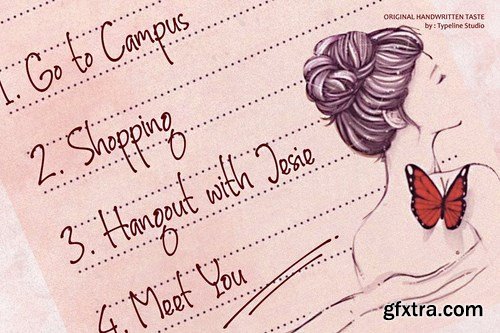 ORIGINAL HANDWRITTEN TASTE
by : Typeline Studio
1. Go to Campus
2. Shopping
3. Hangout with Jesie
4. Meet You
gfxtra.com